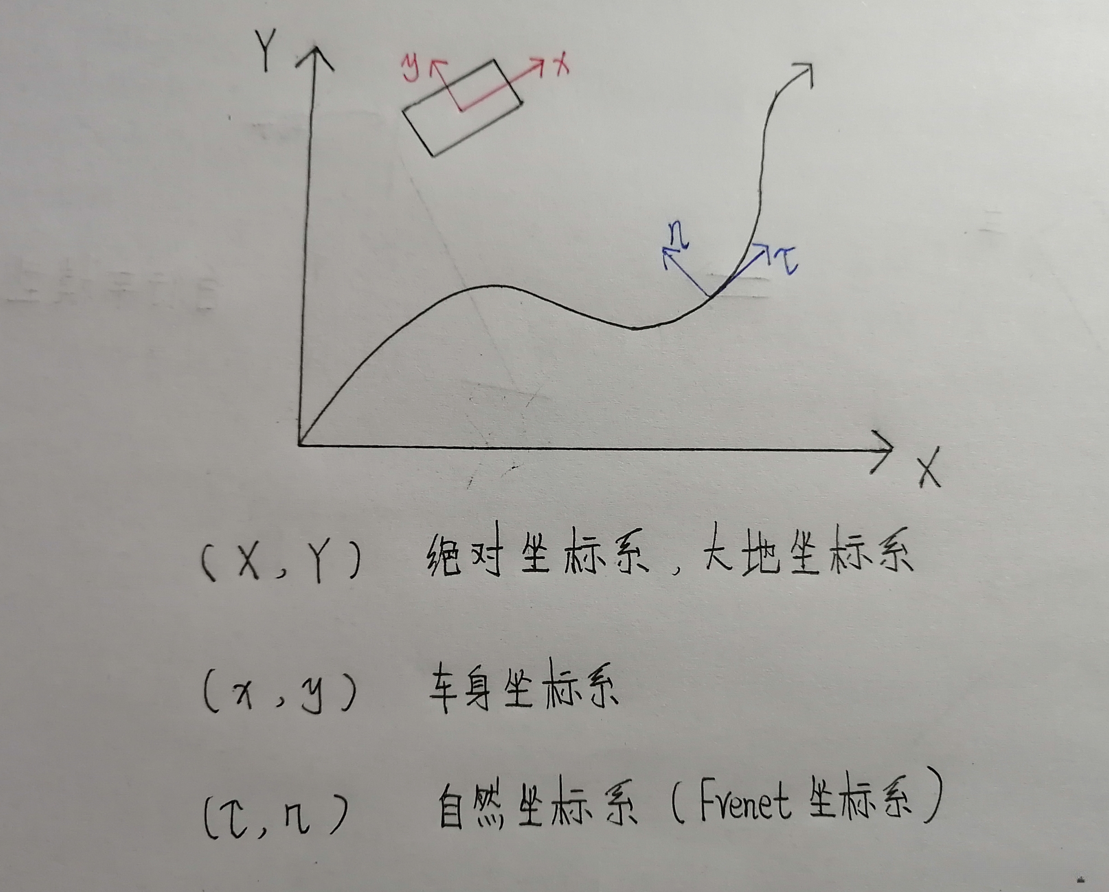 Y
y
x
n
τ
X
(X,Y) 绝对坐标系,大地坐标系
(x,y) 车身坐标系
(τ,n) 自然坐标系(Frenet坐标系)